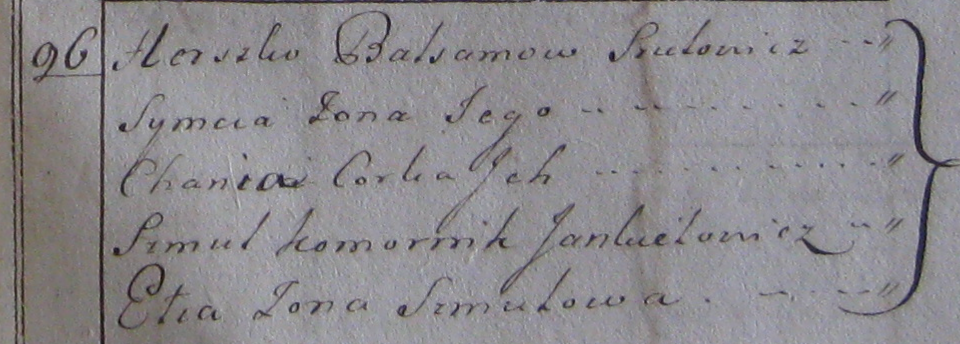 96 Herszko Balsamow Szulowicz
Symcia Zona Jego
Chania Corka Jch
Szmul komornik Jankielowicz
Etia Zona Szmulowa